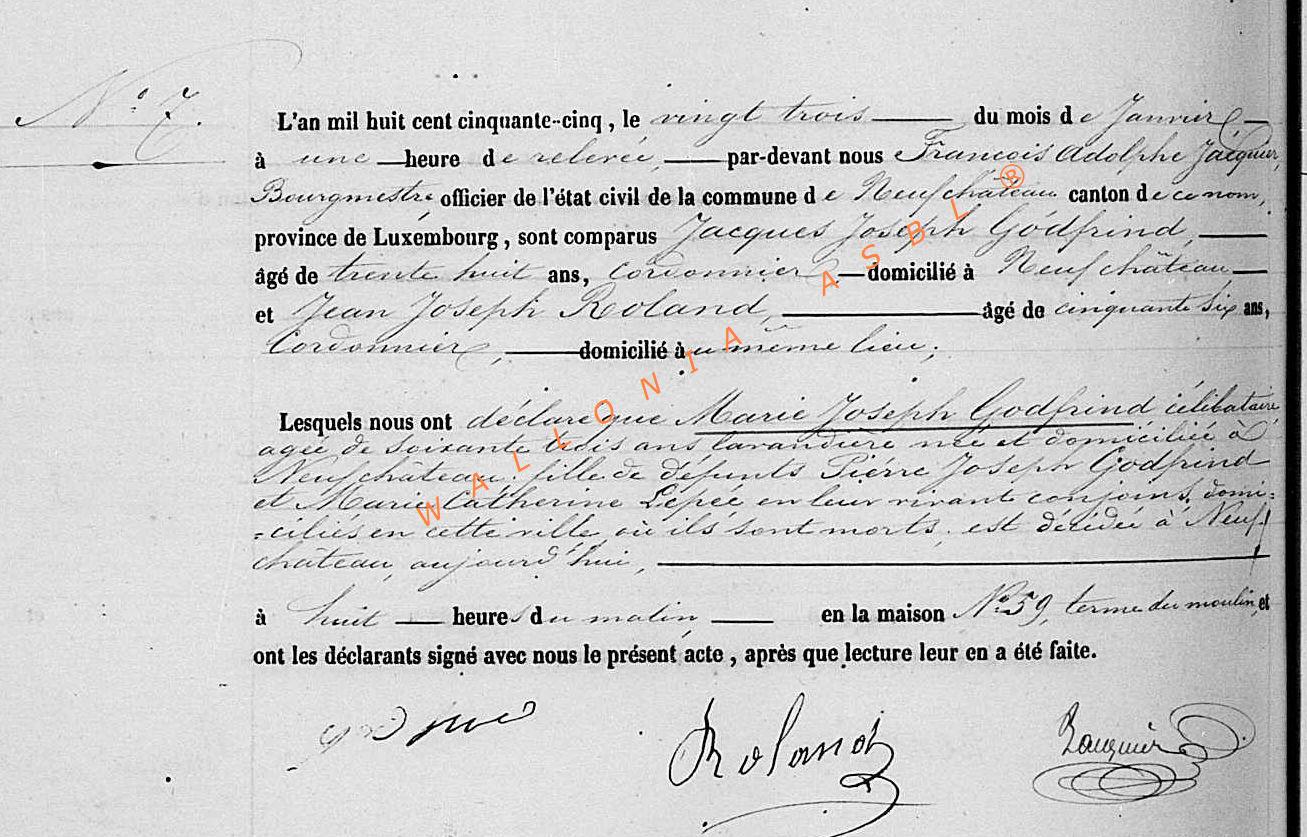 N° 7.
L'an mil huit cent cinquante-cinq, le vingt trois du mois de Janvier
à une heure de relevée, par-devant nous François Adolphe Jacquier,
Bourgmestre, officier de l'état civil de la commune de Neufchâteau canton de ce nom,
province de Luxembourg, sont comparus Jacques Joseph Godfrind,
âgé de trente huit ans, Cordonnier, domicilié à Neufchâteau
et Jean Joseph Roland, âgé de cinquante six ans,
Cordonnier, domicilié au même lieu;
Lesquels nous ont déclaré que Marie Joseph Godfrind célibataire
agée de soixante trois ans lavandière née et domiciliée à
Neufchâteau, fille de défunts Pierre Joseph Godfrind
et Marie Catherine Lepée en leur vivant conjoins, domi=
=ciliés en cette ville où ils sont morts, est décédée à Neuf
château, aujourd'hui,
à huit heures du matin, en la maison N° 59, terme du moulin, et
ont les déclarants signé avec nous le présent acte, après que lecture leur en a été faite.
Roland Jacquier
WALLONIA ASBL ®